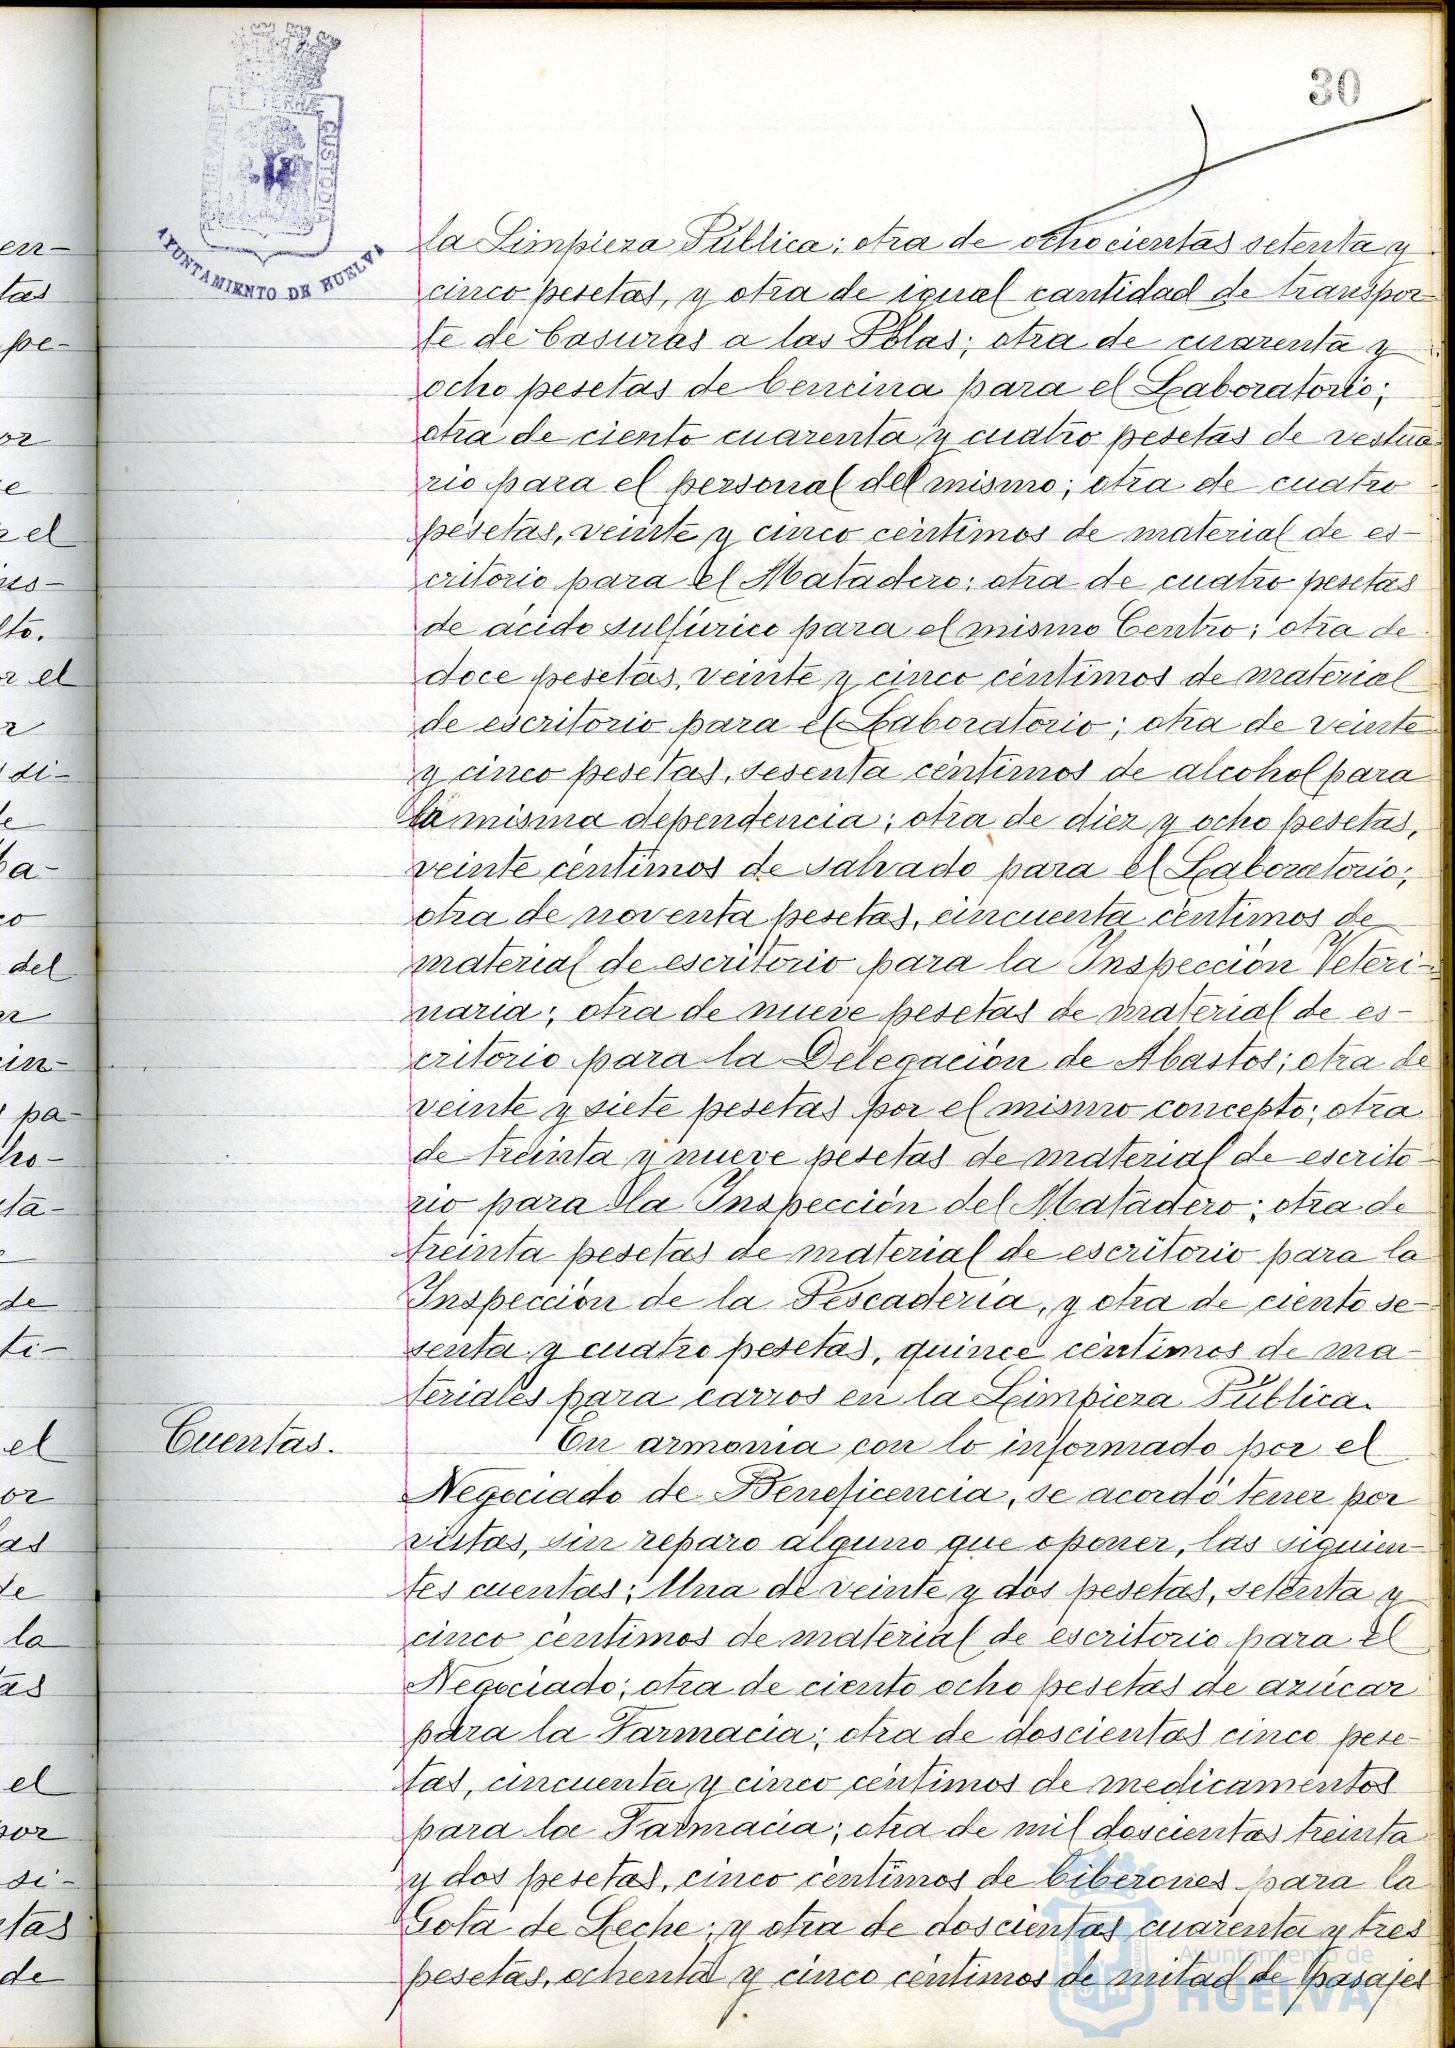 30
AYUNTAMIENTO DE HUELVA
CUSTODIA
la Limpieza Pública; otra de ochocientas setenta y
cinco pesetas, y otra de igual cantidad de transpor-
te de basuras a las Islas; otra de cuarenta y
ocho pesetas de bencina para el Laboratorio;
otra de ciento cuarenta y cuatro pesetas de vestua-
rio para el personal del mismo; otra de cuatro
pesetas, veinte y cinco céntimos de material de es-
critorio para el Matadero; otra de cuatro pesetas
de ácido sulfúrico para el mismo Centro; otra de
doce pesetas, veinte y cinco céntimos de material
de escritorio para el Laboratorio; otra de veinte
y cinco pesetas, sesenta céntimos de alcohol para
la misma dependencia; otra de diez y ocho pesetas,
veinte céntimos de salvado para el Laboratorio;
otra de noventa pesetas, cincuenta céntimos de
material de escritorio para la Inspección Veteri-
naria; otra de nueve pesetas de material de es-
critorio para la Delegación de Abastos; otra de
veinte y siete pesetas por el mismo concepto; otra
de treinta y nueve pesetas de material de escrito-
rio para la Inspección del Matadero; otra de
treinta pesetas de material de escritorio para la
Inspección de la Pescadería, y otra de ciento se-
senta y cuatro pesetas, quince céntimos de ma-
teriales para carros en la Limpieza Pública.
Cuentas.
En armonía con lo informado por el
Negociado de Beneficencia, se acordó tener por
vistas, sin reparo alguno que oponer, las siguien-
tes cuentas: Una de veinte y dos pesetas, setenta y
cinco céntimos de material de escritorio para el
Negociado; otra de ciento ocho pesetas de azúcar
para la Farmacia; otra de doscientas cinco pese-
tas, cincuenta y cinco céntimos de medicamentos
para la Farmacia; otra de mil doscientas treinta
y dos pesetas, cinco céntimos de biberones para la
Gota de Leche; y otra de doscientas cuarenta y tres
pesetas, ochenta y cinco céntimos de mitad de pasajes
Ayuntamiento de
HUELVA